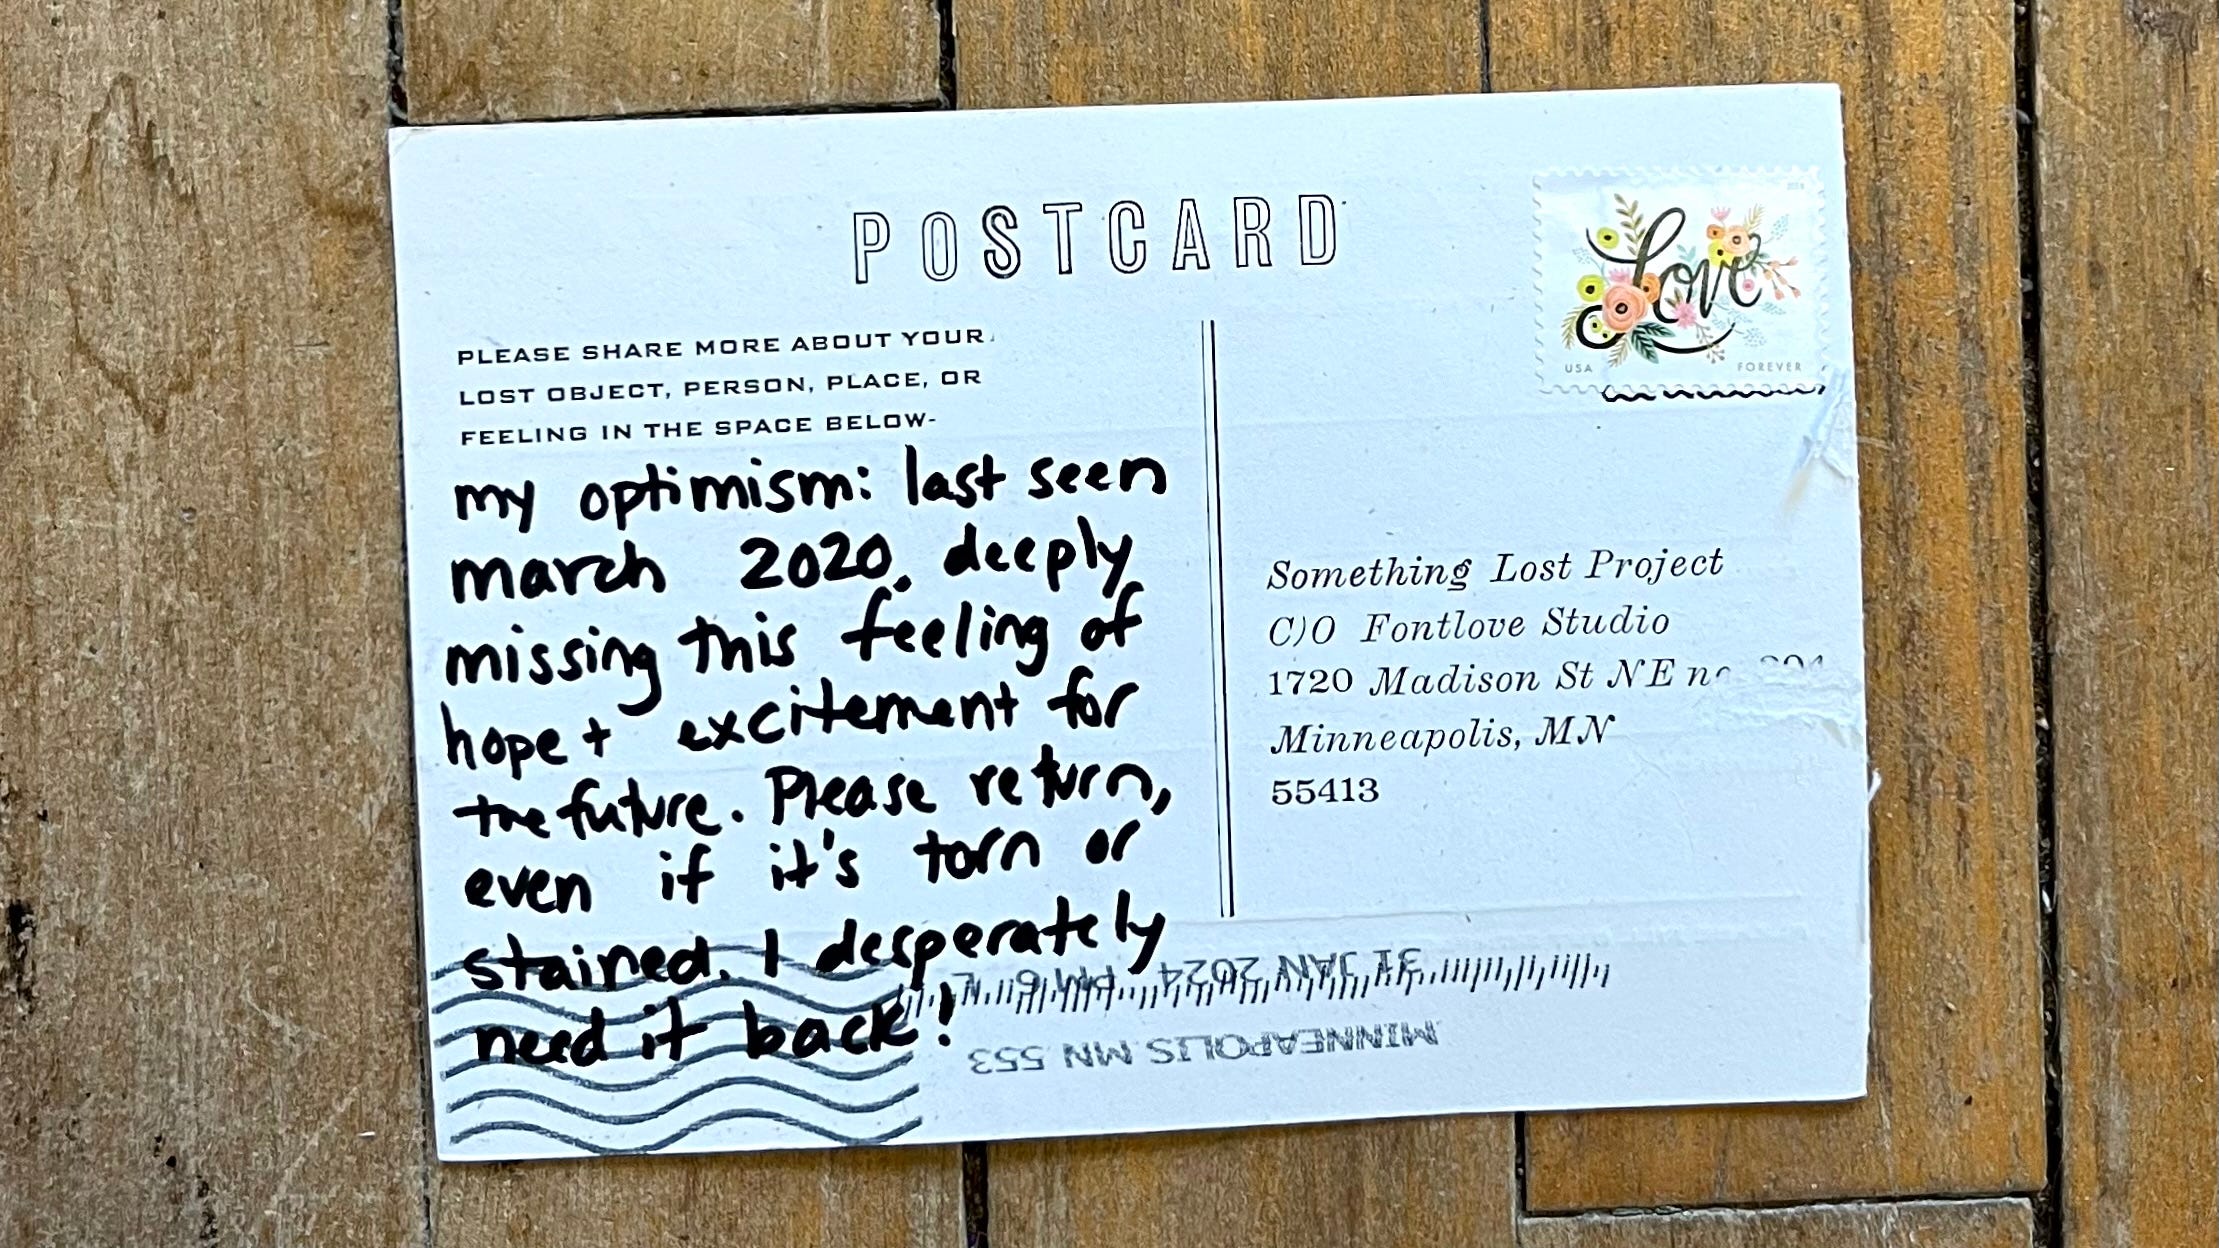 POSTCARD
Love
USA
FOREVER
PLEASE SHARE MORE ABOUT YOUR
LOST OBJECT, PERSON, PLACE, OR
FEELING IN THE SPACE BELOW-
my optimism: last seen
march 2020. deeply
missing this feeling of
hope + excitement for
the future. Please return,
even if it's torn or
stained. I desperately
need it back!
Something Lost Project
C)O Fontlove Studio
1720 Madison St NE
Minneapolis, MN
55413
MINNEAPOLIS MN 553
31 JAN 2024 PM 6 L